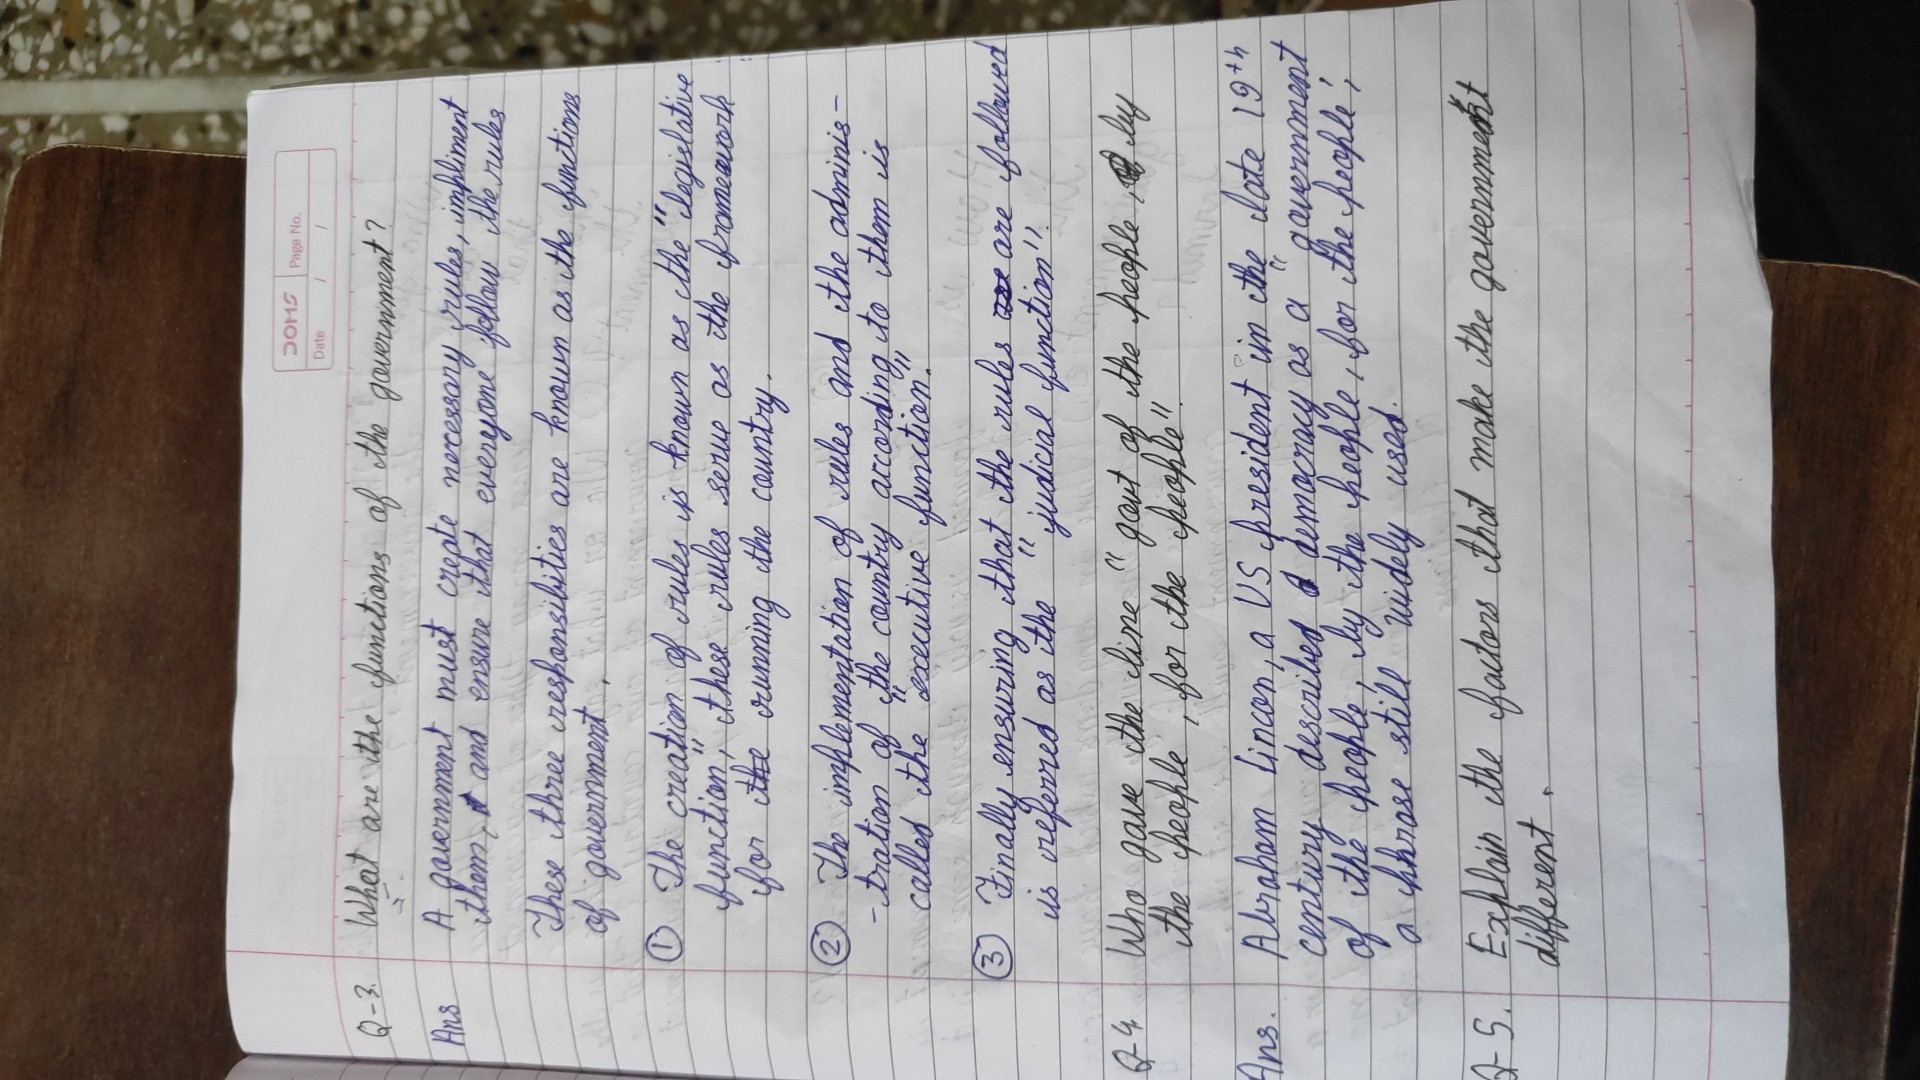 DOMS
Page No.
Date / /
Q-3. What are the functions of the government?
Ans A government must create necessary rules, impliment
them, and ensure that everyone follow the rules
These three responsibilities are known as the functions
of government.
① The creation of rules is known as the "legislative
function", these rules serve as the framework
for the running the country.
② The implementation of rules and the adminis-
-tration of the country according to them is
called the "executive function."
③ Finally ensuring that the rules are followed
is referred as the "judicial function".
Q-4 Who gave the line "govt of the people, by
the people, for the people".
Ans. Abraham Lincon, a US president in the late 19th
century described democracy as a "government
of the people, by the people, for the people,
a phrase still widely used.
Q-5. Explain the factors that make the government
different.